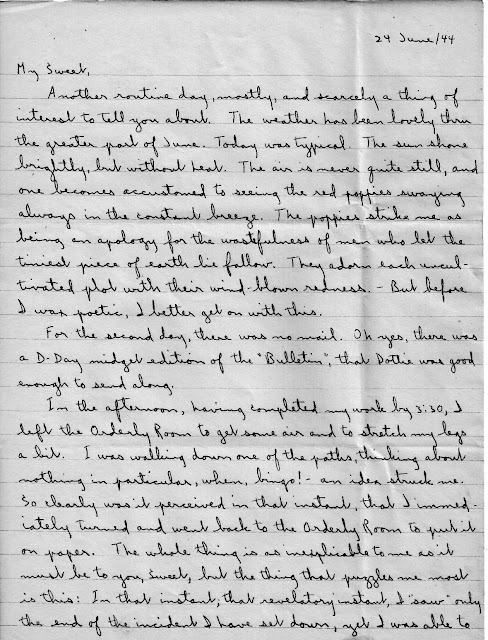 24 June/44
My Sweet,
Another routine day, mostly, and scarcely a thing of
interest to tell you about. The weather has been lovely thru
the greater part of June. Today was typical. The sun shone
brightly, but without heat. The air is never quite still, and
one becomes accustomed to seeing the red poppies swaying
always in the constant breeze. The poppies strike me as
being an apology for the wastefulness of men who let the
tiniest piece of earth lie fallow. They adorn each uncul-
tivated plot with their wind-blown redness. - But before
I wax poetic, I better get on with this.
For the second day, there was no mail. Oh yes, there was
a D-Day midget edition of the "Bulletin", that Dottie was good
enough to send along.
In the afternoon, having completed my work by 3:30, I
left the Orderly Room to get some air and to stretch my legs
a bit. I was walking down one of the paths, thinking about
nothing in particular, when, bingo! - an idea struck me.
So clearly was it perceived in that instant, that I immed-
iately turned and went back to the Orderly Room to put it
on paper. The whole thing is as inexplicable to me as it
must be to you, Sweet, but the thing that puzzles me most
is this: In that instant, that revelatory instant, I "saw" only
the end of the incident I have set down, yet I was able to